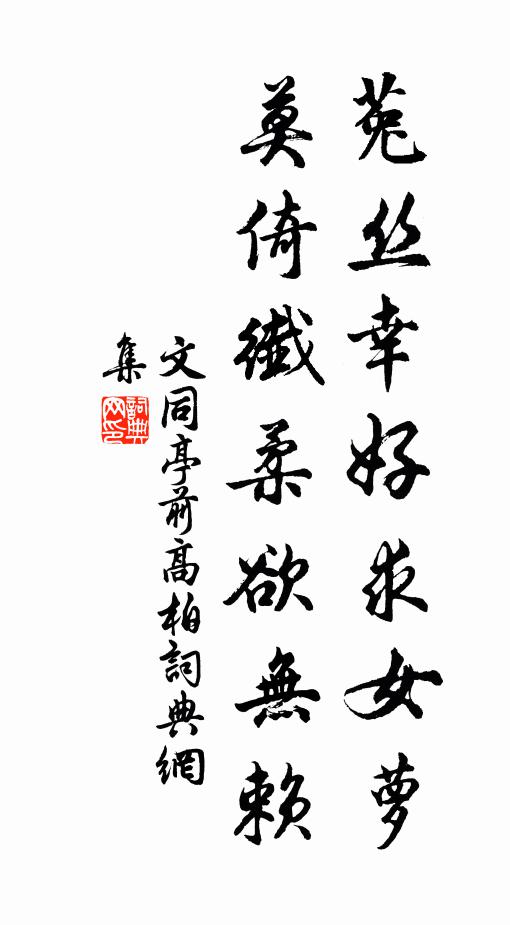 菟丝幸好求女萝
莫倚纖柔欲無賴
文同亭前高柏詞典網
集
詞典网印